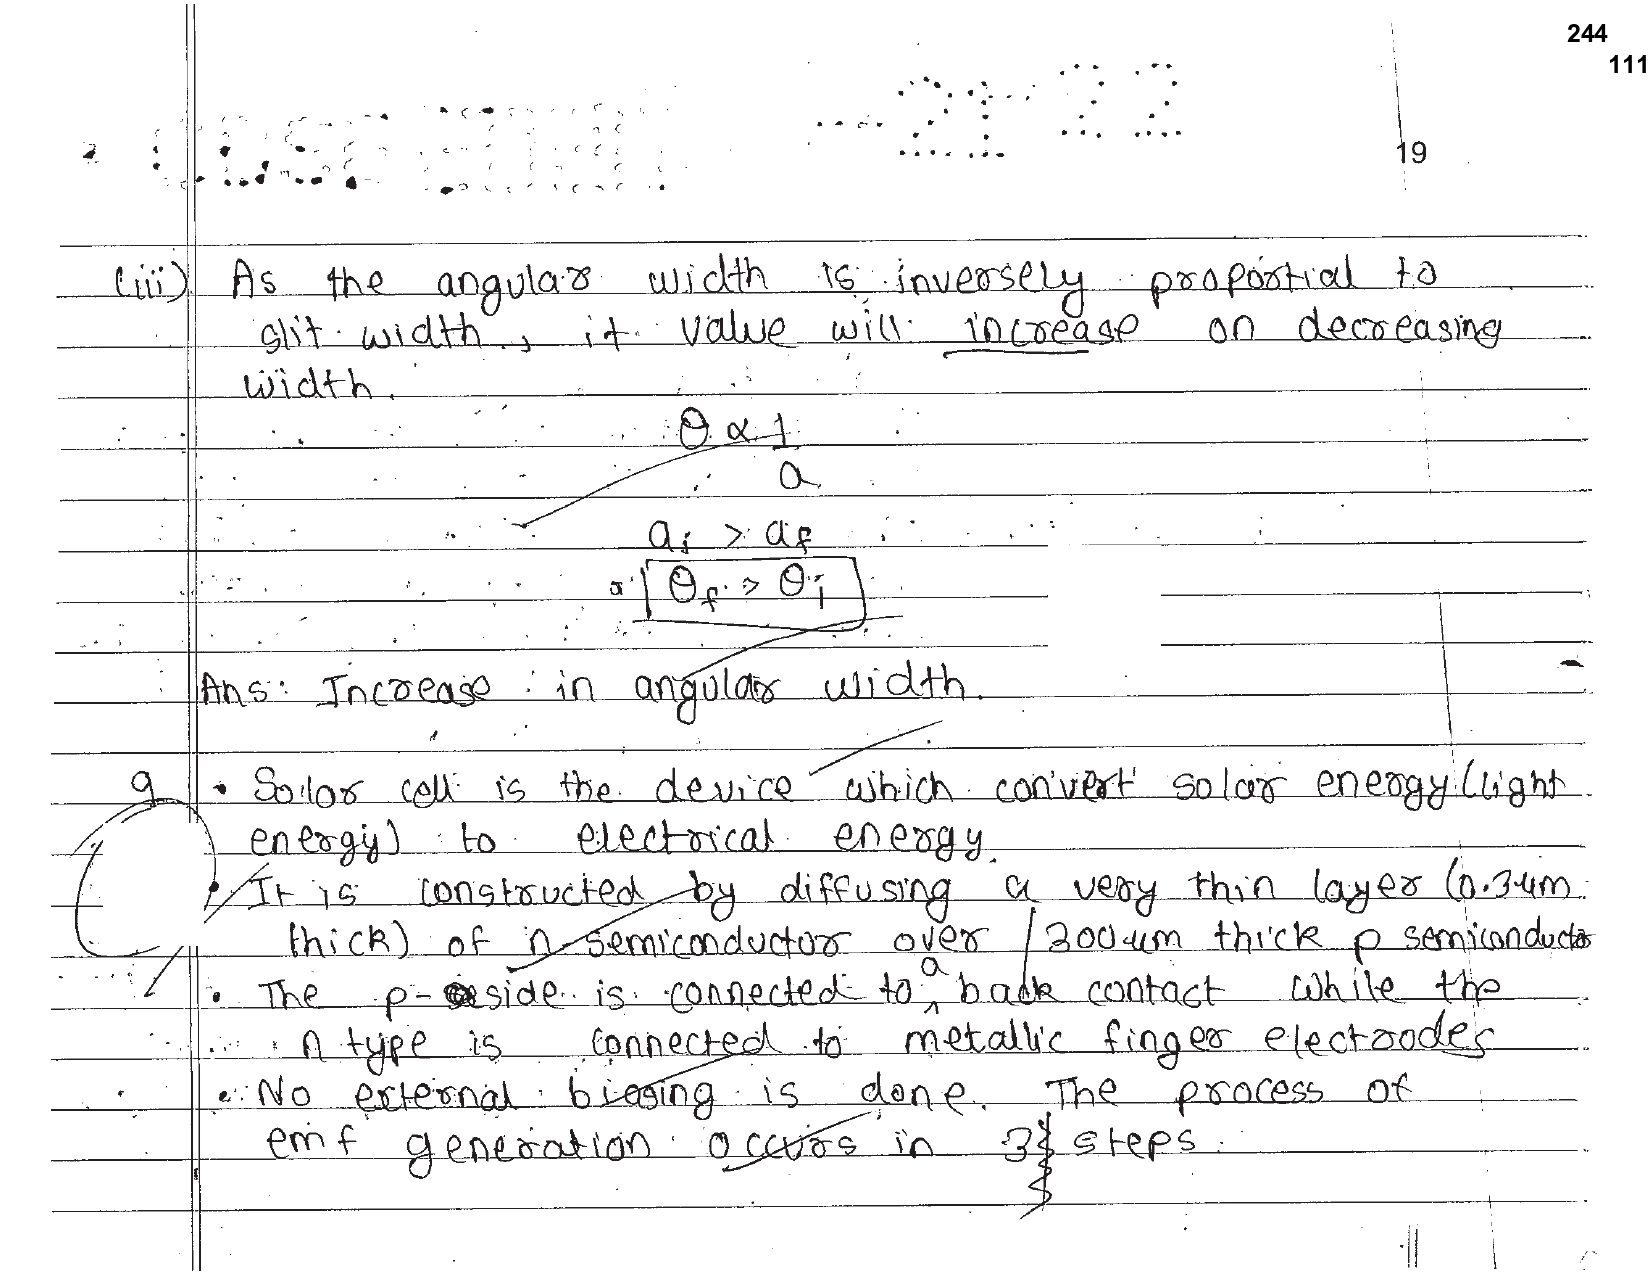 244
111
19
(iii) As the angular width is inversely proportial to
slit width, it value will increase on decreasing
width.
θ ∝ 1
a
ai > af
θf > θi
Ans: Increase in angular width.
9 • Solar cell is the device which convert solar energy (light
energy) to electrical energy.
• It is constructed by diffusing a very thin layer (0.3μm
thick) of n semiconductor over 300μm thick p semiconductor
• The p-side is connected to a back contact while the
n type is connected to metallic finger electrodes
• No external biasing is done. The process of
emf generation occurs in 3 steps.